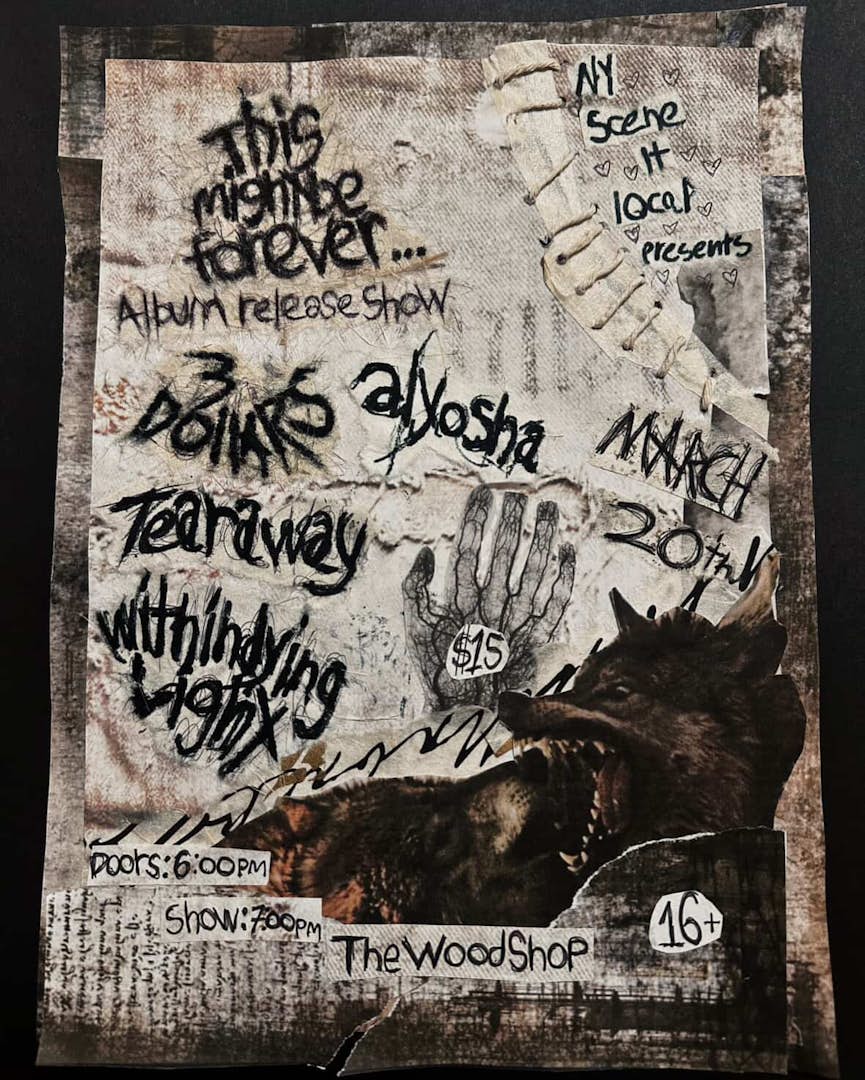 NY
Scene
It
local
presents
This
might be
forever...
Album release show
3
DOllARS
alyosha
MARCH
20th
Tearaway
withindying
Light
$15
Doors: 6:00PM
Show: 7:00PM
The WoodShop
16+